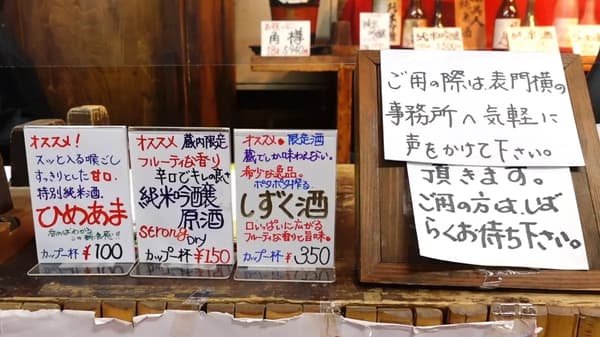 角樽
1.8 5940円
オススメ!
スッと入る喉ごし
すっきりとした甘口.
特別純米酒
ひめあま
カップ一杯 ¥100
オススメ 蔵内限定
フルーティな香り
辛口でキレの良さ
純米吟醸
原酒
strong DRY
カップ一杯 ¥150
オススメ。限定酒
蔵でしか味わえない。
希少な逸品。
ポタポタ搾る
しずく酒
口いっぱいに広がる
フルーティな香りと旨味。
カップ一杯 ¥350
ご用の際は、表門横の
事務所へ気軽に
声をかけて下さい。
頂きます。
ご用の方は、しば
らくお待ち下さい。